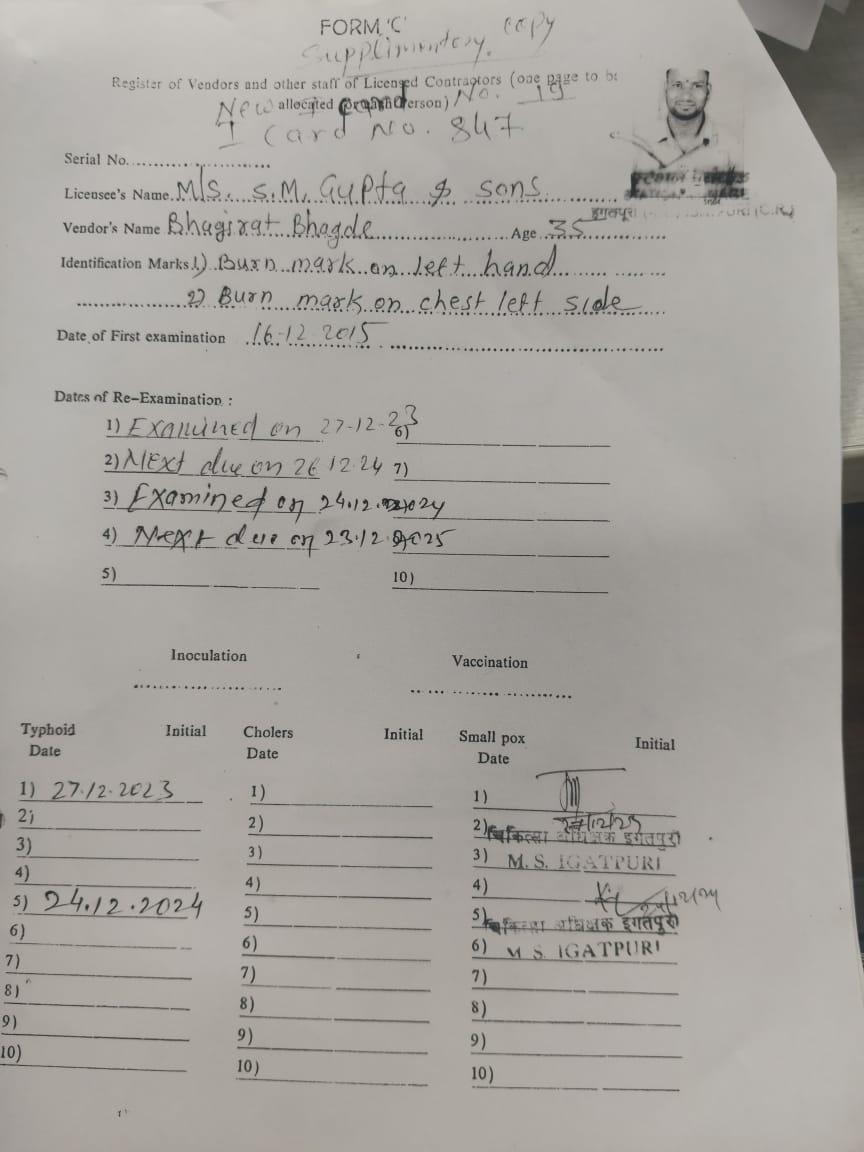 FORM 'C'
Supplimentory copy
Register of Vendors and other staff of Licensed Contractors (one page to be
allocated for each person)
New card No. 19
I Card No. 847
Serial No.
Licensee's Name M/S. S.M. Gupta & sons
इगतपुरी (C.R.)
Vendor's Name Bhagirat Bhagde Age 35
Identification Marks 1) Burn mark on left hand
2) Burn mark on chest left side
Date of First examination 16-12-2015
Dates of Re-Examination :
1) Examined on 27-12-23 6)
2) Next due on 26 12 24 7)
3) Examined on 24.12.2024
4) Next due on 23.12.2025
5) 10)
Inoculation Vaccination
Typhoid Initial Cholers Initial Small pox Initial
Date Date Date
1) 27.12.2023 1) 1)
2) 2) 2) चिकित्सा अधिक्षक इगतपुरी
3) 3) 3) M. S. IGATPURI
4) 4) 4)
5) 24.12.2024 5) 5) चिकित्सा अधिक्षक इगतपुरी
6) 6) 6) M S. IGATPURI
7) 7) 7)
8) 8) 8)
9) 9) 9)
10) 10) 10)